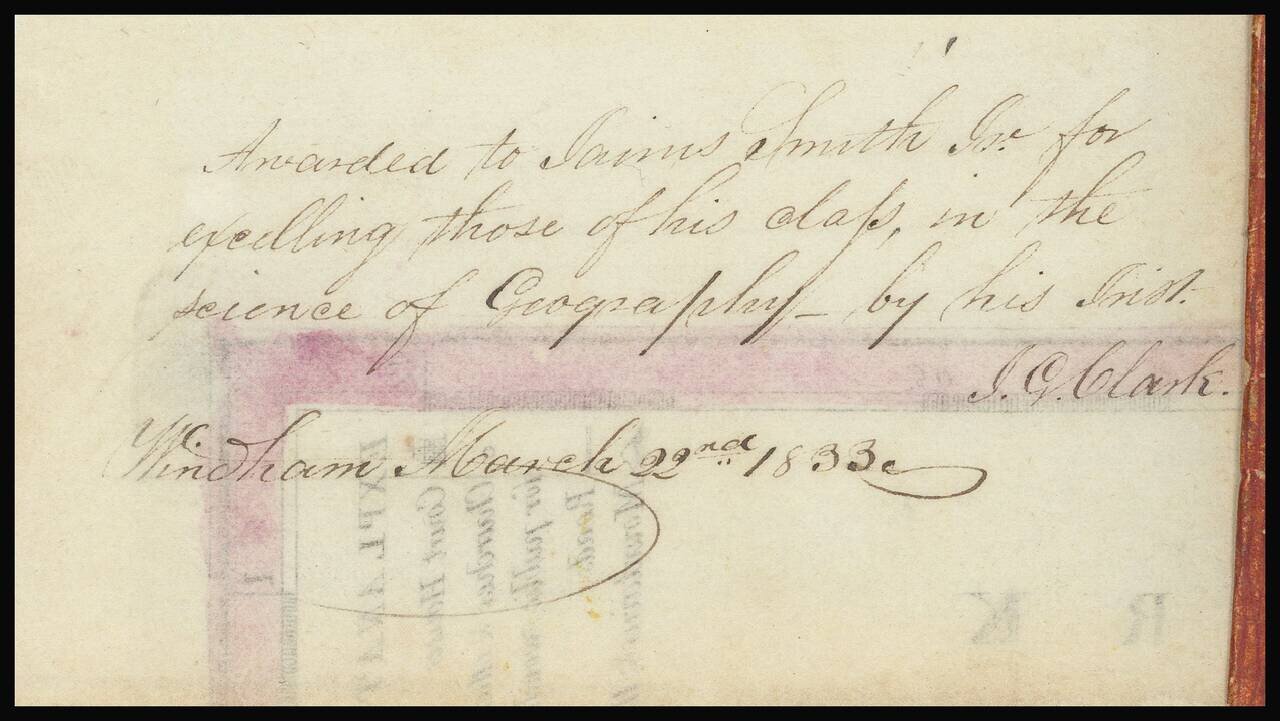 Awarded to Jaims Smith Jr. for
excelling those of his class, in the
science of Geography – by his Inst.
J. G. Clark.
Windham March 22nd 1833
R K